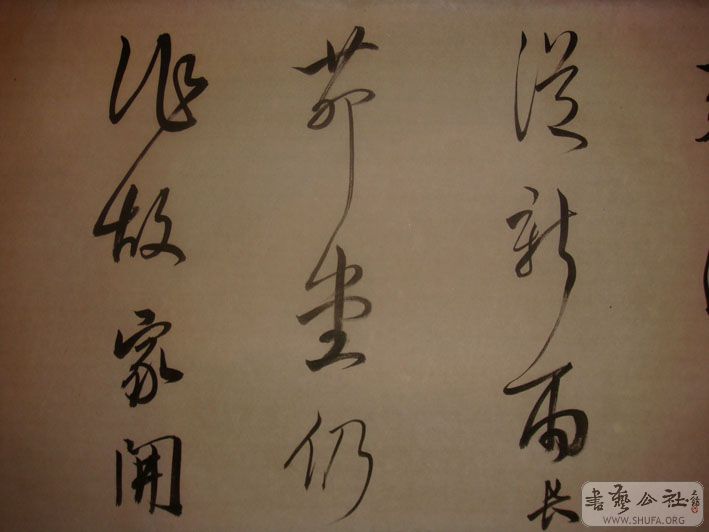 從新雨長
茆堂仍
作故家開
書藝公社
WWW.SHUFA.ORG